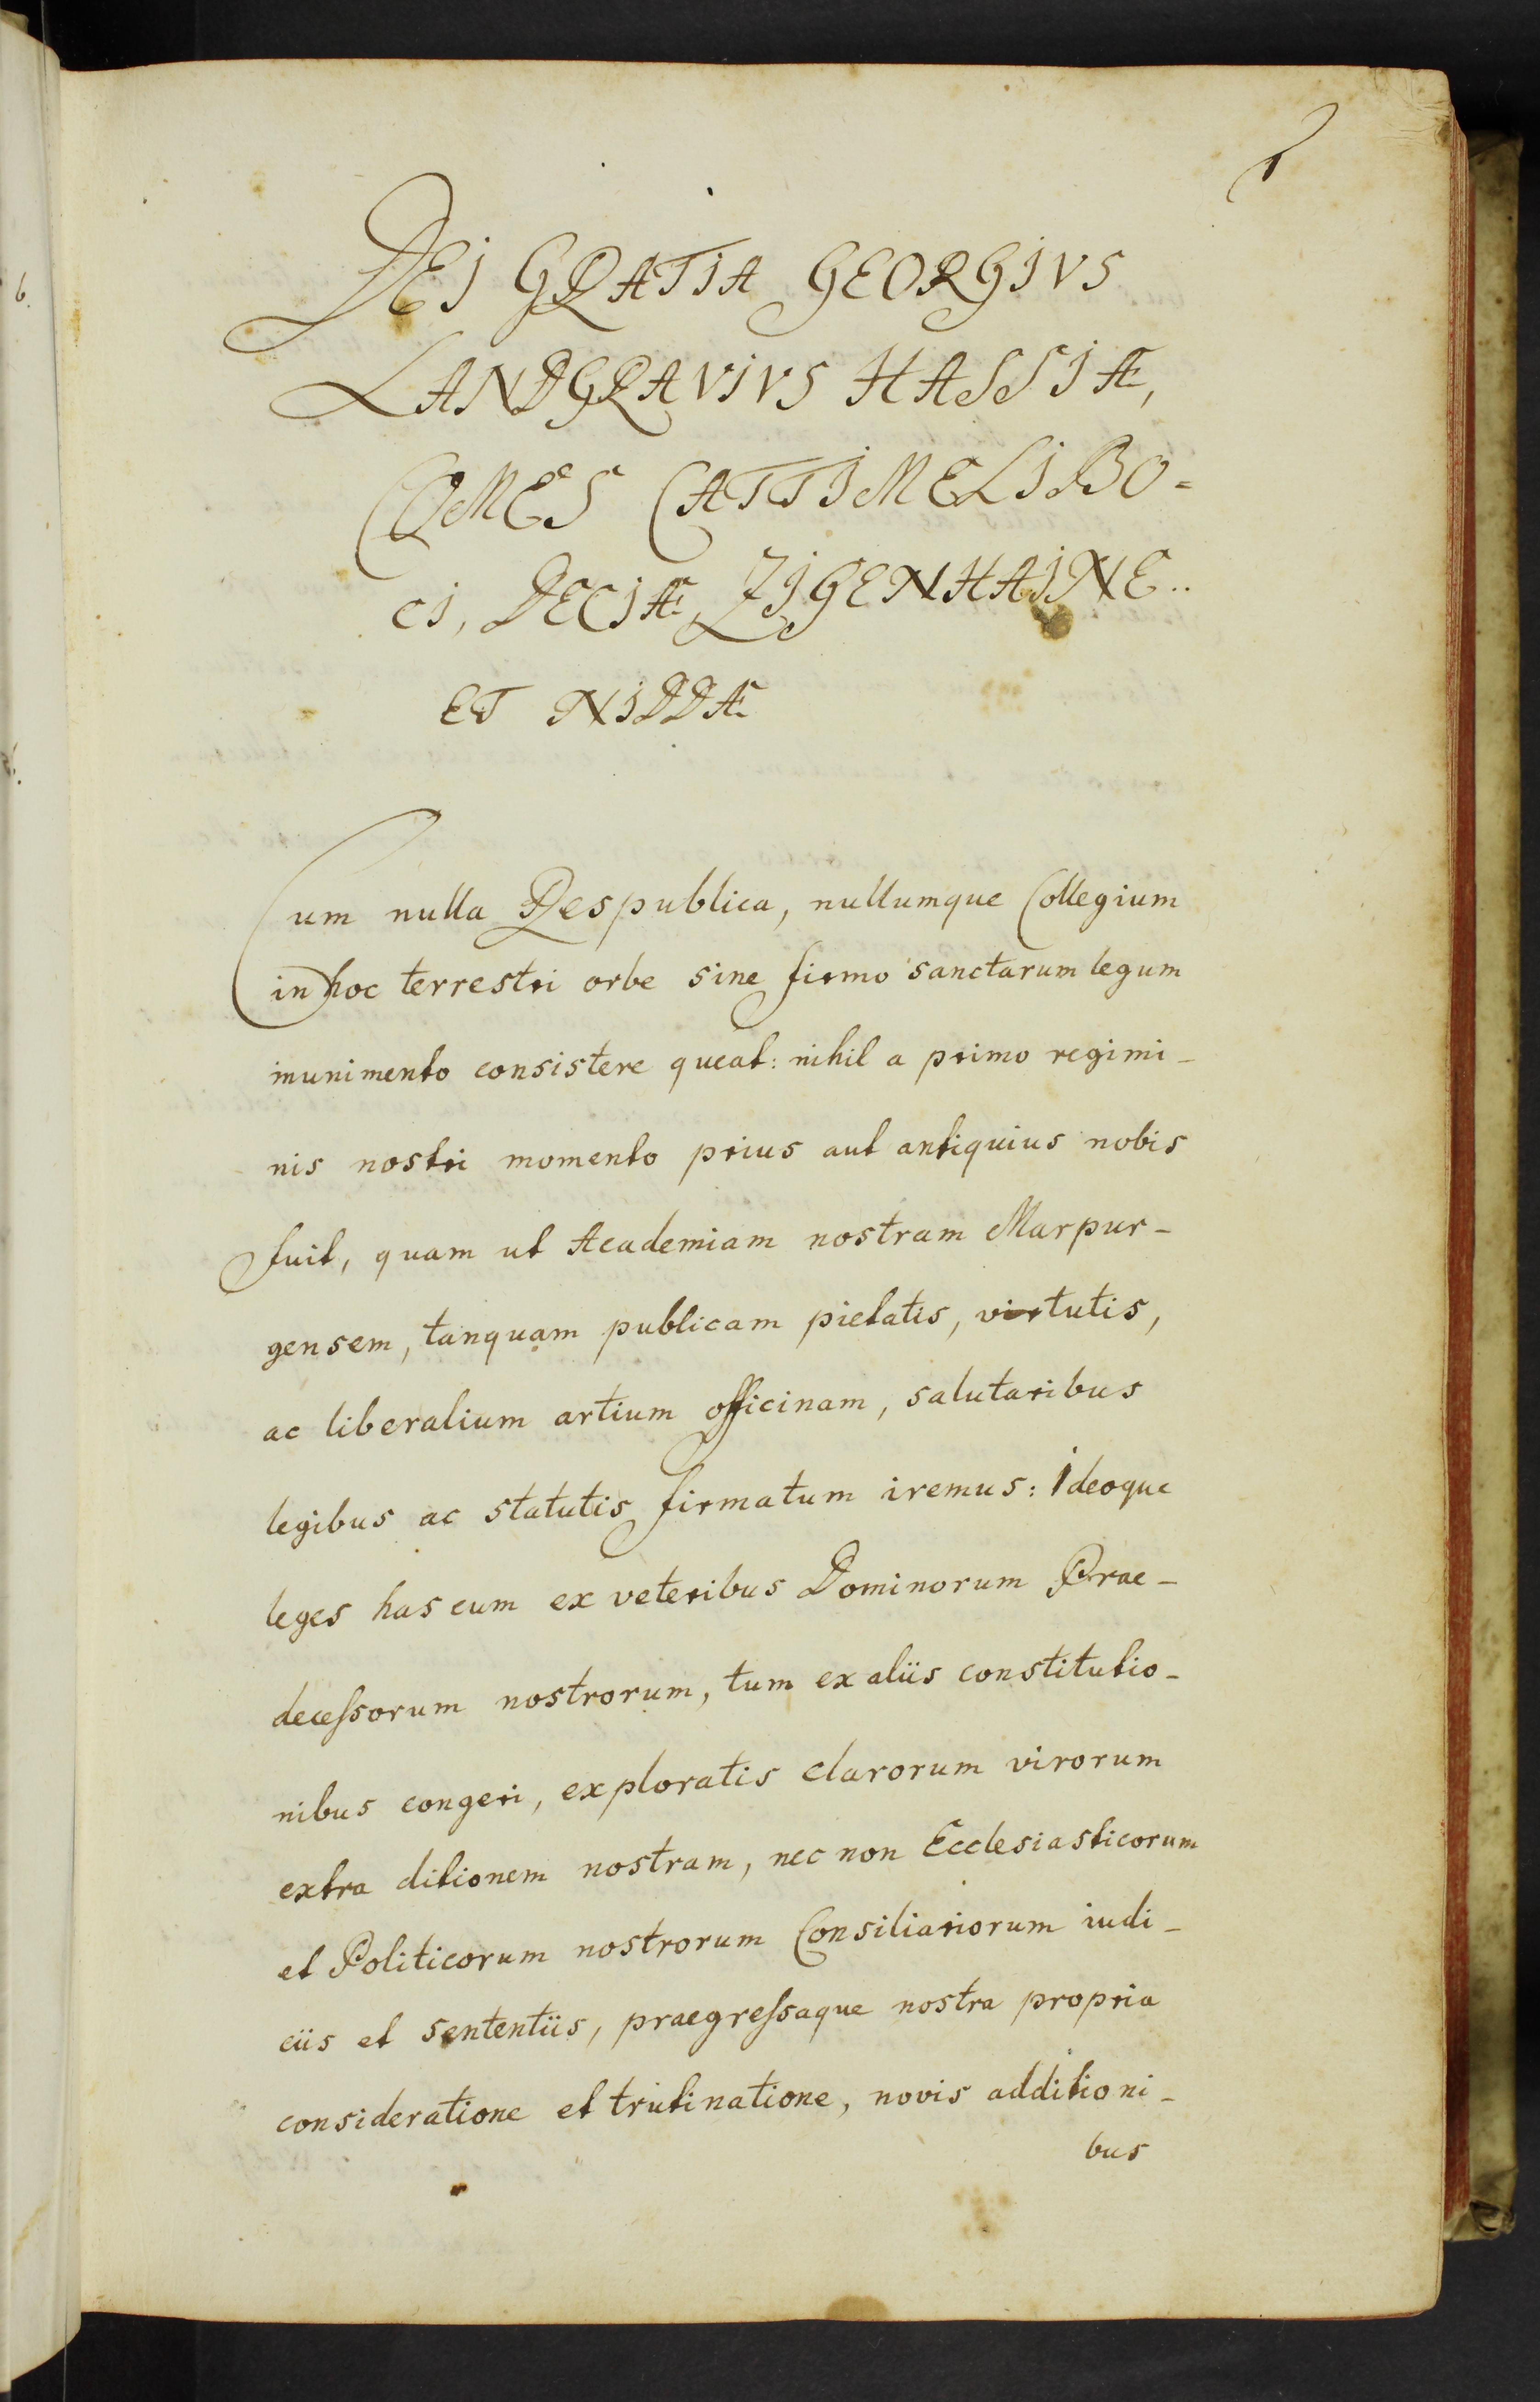 1
DEI GRATIA GEORGIVS
LANDGRAVIVS HASSIÆ,
COMES CATTIMELIBO-
CI, DECIÆ, ZIGENHAINE..
ET NIDDÆ
Cum nulla Respublica, nullumque Collegium
in hoc terrestri orbe sine firmo sanctarum legum
munimento consistere queat: nihil a primo regimi-
nis nostri momento prius aut antiquius nobis
fuit, quam ut Academiam nostram Marpur-
gensem, tanquam publicam pietatis, virtutis,
ac liberalium artium officinam, salutaribus
legibus ac statutis firmatum iremus: Ideoque
leges has cum ex veteribus Dominorum Prae-
deceſsorum nostrorum, tum ex aliis constitutio-
nibus congeri, exploratis clarorum virorum
extra ditionem nostram, nec non Ecclesiasticorum
et Politicorum nostrorum Consiliariorum iudi-
ciis et sententiis, praegreſsaque nostra propria
consideratione et trutinatione, novis additioni-
bus
6.